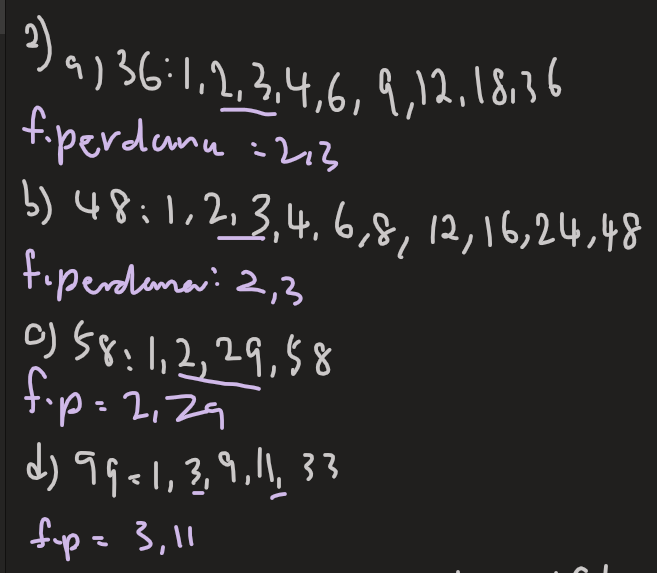 2) a) 36: 1, 2, 3, 4, 6, 9, 12, 18, 36
f.perdana = 2,3
b) 48: 1, 2, 3, 4, 6, 8, 12, 16, 24, 48
f.perdana: 2,3
c) 58: 1, 2, 29, 58
f.p = 2, 29
d) 99 = 1, 3, 9, 11, 33
f.p = 3, 11